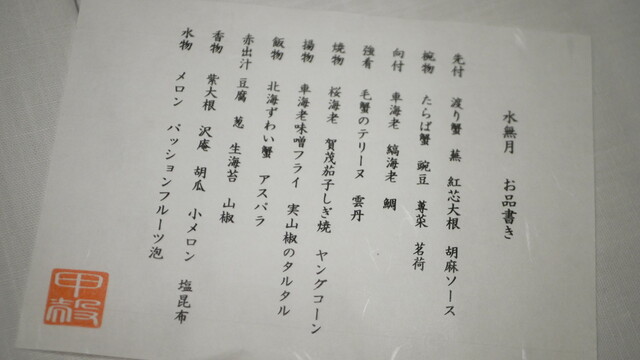 水無月 お品書き
先付 渡り蟹 蕪 紅芯大根 胡麻ソース
椀物 たらば蟹 豌豆 蓴菜 茗荷
向付 車海老 縞海老 鯛
強肴 毛蟹のテリーヌ 雲丹
焼物 桜海老 賀茂茄子しぎ焼 ヤングコーン
揚物 車海老味噌フライ 実山椒のタルタル
飯物 北海ずわい蟹 アスパラ
赤出汁 豆腐 葱 生海苔 山椒
香物 紫大根 沢庵 胡瓜 小メロン 塩昆布
水物 メロン パッションフルーツ泡
甲殻